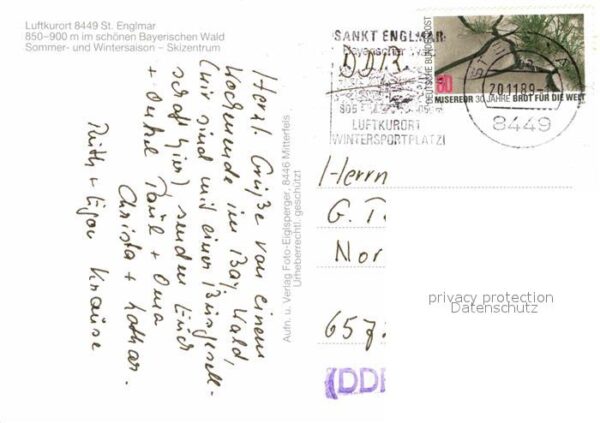 Luftkurort 8449 St. Englmar
850–900 m im schönen Bayerischen Wald
Sommer- und Wintersaison – Skizentrum
Herzl. Grüße von einem
Wochenende im Bay. Wald,
(wir sind mit einer Bürgesell-
schaft hier), senden Euch
+ Onkel Paul + Oma
Christa + Lothar.
Ruth + Egon Krause
Aufn. u. Verlag Foto-Eiglsperger, 8446 Mitterfels
Urheberrechtl. geschützt
SANKT ENGLMAR
Bayerischer Wald
DDR
805
LUFTKURORT
WINTERSPORTPLATZ
DEUTSCHE BUNDESPOST
80
MISEREOR 30 JAHRE BROT FÜR DIE WELT
20.11.89
8449
Herrn
G. T.
Nor
657
(DDR
privacy protection
Datenschutz